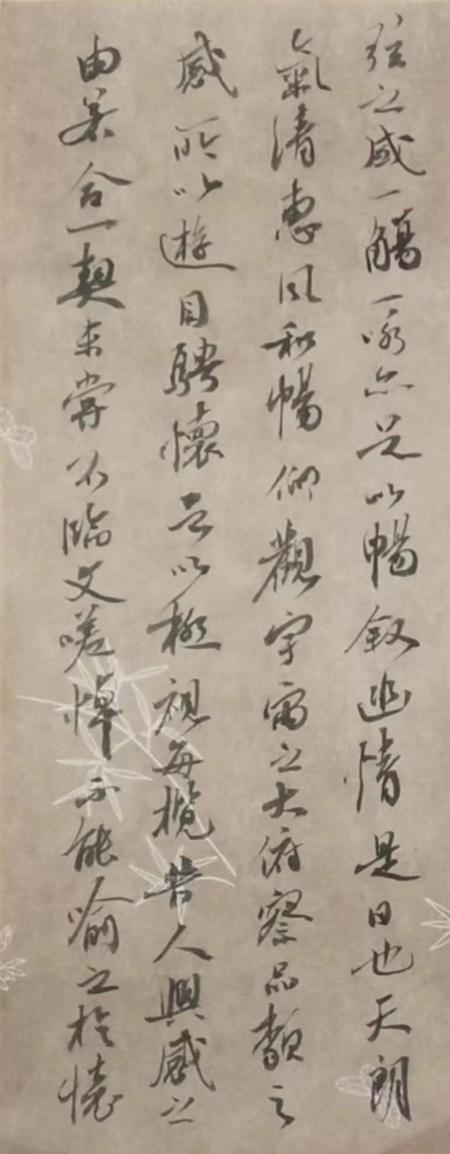 弦之盛一觴一詠亦足以暢叙幽情是日也天朗
氣清惠風和暢仰觀宇宙之大俯察品類之
盛所以遊目騁懷足以極視每攬昔人興感之
由若合一契未嘗不臨文嗟悼不能喻之於懷